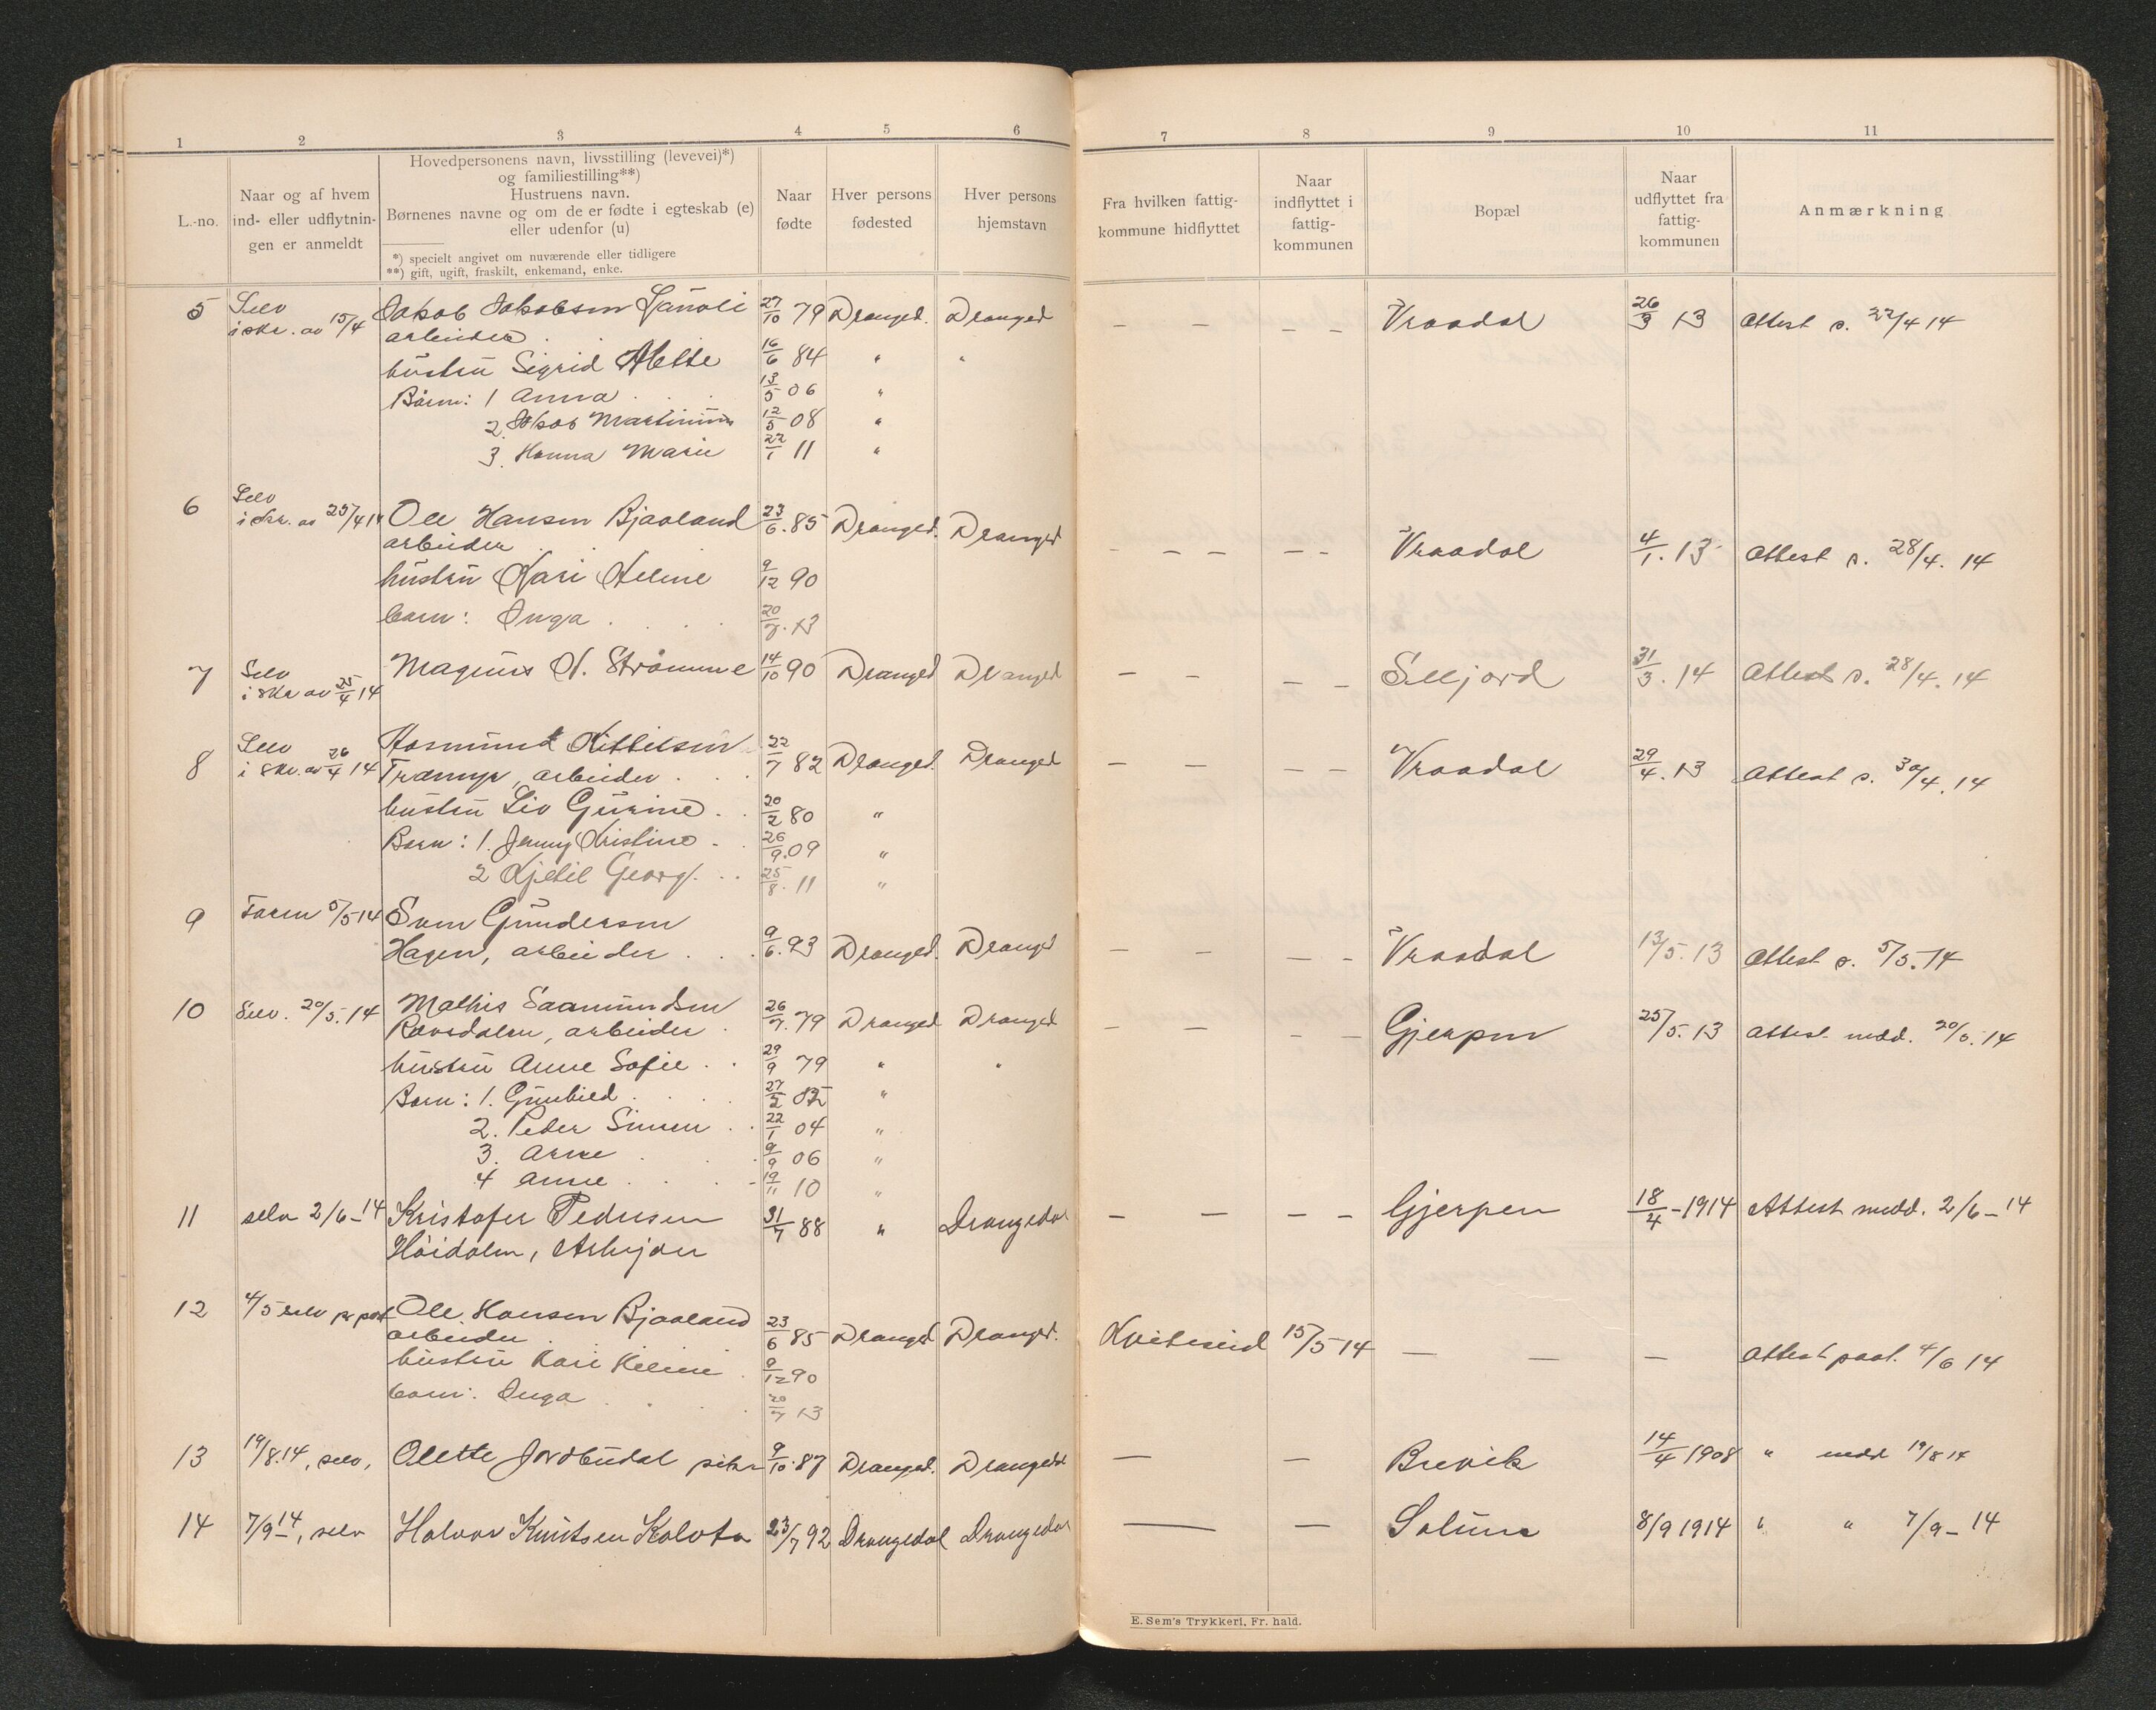 1 2 3 4 5 6 7 8 9 10 11
L.-no.
Naar og af hvem
ind- eller udflytnin-
gen er anmeldt
Hovedpersonens navn, livsstilling (levevei)*)
og familiestilling**)
Hustruens navn.
Børnenes navne og om de er fødte i egteskab (e)
eller udenfor (u)
*) specielt angivet om nuværende eller tidligere
**) gift, ugift, fraskilt, enkemand, enke.
Naar
fødte
Hver persons
fødested
Hver persons
hjemstavn
Fra hvilken fattig-
kommune hidflyttet
Naar
indflyttet i
fattig-
kommunen
Bopæl
Naar
udflyttet fra
fattig-
kommunen
Anmærkning
5 Selv Jakob Jakobsen 27/10 79 Dranged. Dranged – – – – Vraadal 26/3 13 Attest s. 22/4 14
i skr. av 15/4 arbeider
hustru Sigrid Mette 16/6 84 " "
Børn: 1 Anna 13/5 06 "
2. Jakob Martinius 12/5 08 "
3. Hanna Marie 22/1 11 "
6 Selv
i skr. av 25/4 14 Ole Hansen Bjaaland 23/6.85 Dranged. Dranged – – – – – Vraadal 4/1.13 Attest s. 28/4. 14
arbeider
hustru Kari Helene 9/12 90
barn: Inga 20/7.13
7 Selv Magnus H. Strømme 14/10 90 Dranged Dranged – – – – Seljord 31/3.14 Attest s. 28/4.14
i skr av 25/4 14
8 Selv Aasmund Kittilsen 22/7 82 Dranged. Dranged – – – – Vraadal 29/4.13 Attest s. 30/4.14
i skr. av 26/4 14 Træmyr, arbeider
hustru Liv Gurine 20/2 80 "
Barn: 1. Jenny Kristine 26/9.09 "
2 Kjetil Georg. 25/8.11 "
9 Faren 5/5 14 Sven Gundersen
Hagen, arbeider 9/6.93 Dranged. Dranged – – – – Vraadal 13/5.13 Attest s. 5/5.14
10 Selv. 20/5.14 Mathis Saamundsen 26/7.79 Dranged Dranged – – – – Gjerpen 25/5.13 Attest medd. 20/5.14
Ravsdalen, arbeider
hustru Anne Sofie 29/9 79 " "
Barn: 1. Gunhild 27/2 02 "
2. Peder Simen 22/1 04 "
3. Arne 9/9 06 "
4 Anne 19/11 10 "
11 selv 2/6–14 Kristofer Pedersen 31/7 88 " Drangedal – – – – Gjerpen 18/4–1914 Attest medd. 2/6–14
Høidalen, Arbeider
12 4/5 selv pr post Ole Hansen Bjaaland 23/6 85 Dranged Dranged. Kviteseid 15/5 14 – – – Attest paat. 4/6 14
arbeider
hustru Kari Helene 9/12 90
barn: Inga 20/7 13
13 19/8.14, selv, Olette Jordbudal pike 9/10.87 Dranged. Drangedal – – Brevik 14/4 1908 " medd 19/8 14
14 7/9–14, selv Halvor Knutsen Kalvta 23/7 92 Drangedal Drangedal – – Solum 8/9 1914 " " 7/9–14
E. Sem's Trykkeri, Fr. hald.